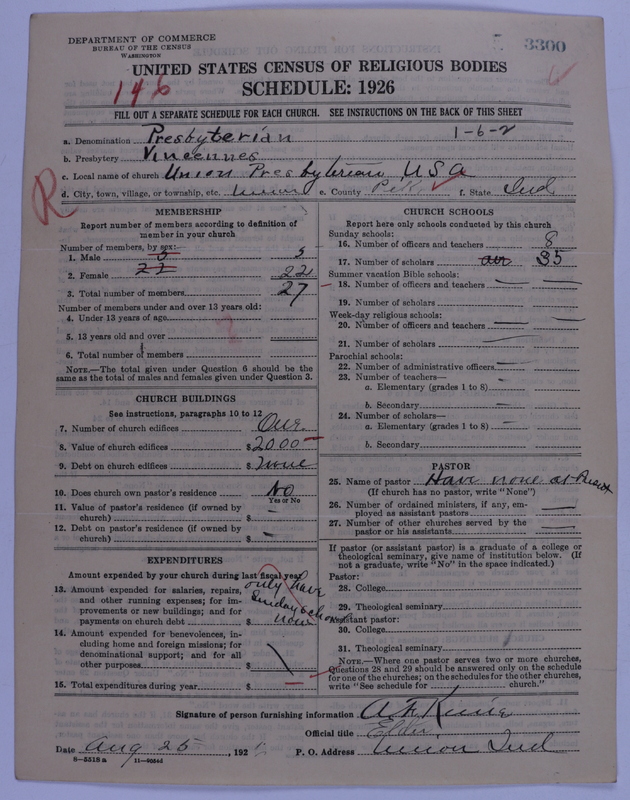 DEPARTMENT OF COMMERCE
BUREAU OF THE CENSUS
WASHINGTON
3300
UNITED STATES CENSUS OF RELIGIOUS BODIES
146
SCHEDULE: 1926
FILL OUT A SEPARATE SCHEDULE FOR EACH CHURCH. SEE INSTRUCTIONS ON THE BACK OF THIS SHEET
a. Denomination Presbyterian 1-6-2
b. Presbytery Vincennes
c. Local name of church Union Presbyterian USA
R
d. City, town, village, or township, etc. Union e. County Pike f. State Ind
MEMBERSHIP
Report number of members according to definition of
member in your church
Number of members, by sex:—
1. Male 5 5
2. Female 22 22
3. Total number of members 27
Number of members under and over 13 years old:
4. Under 13 years of age
5. 13 years old and over
6. Total number of members
NOTE.—The total given under Question 6 should be
same as the total of males and females given under Question 3.
CHURCH BUILDINGS
See instructions, paragraphs 10 to 12
7. Number of church edifices One
8. Value of church edifices $2000
9. Debt on church edifices $ None
10. Does church own pastor's residence No
Yes or No
11. Value of pastor's residence (if owned by
church) $ —
12. Debt on pastor's residence (if owned by
church) $ —
EXPENDITURES
Amount expended by your church during last fiscal year
13. Amount expended for salaries, repairs,
and other running expenses; for im-
provements or new buildings; and for
payments on church debt $
only have
Sunday school
now
14. Amount expended for benevolences, in-
cluding home and foreign missions; for
denominational support; and for all
other purposes $
15. Total expenditures during year $ —
CHURCH SCHOOLS
Report here only schools conducted by this church
Sunday schools:
16. Number of officers and teachers 8
17. Number of scholars 35
Summer vacation Bible schools:
18. Number of officers and teachers —
19. Number of scholars
Week-day religious schools:
20. Number of officers and teachers —
21. Number of scholars
Parochial schools:
22. Number of administrative officers —
23. Number of teachers—
a. Elementary (grades 1 to 8)
b. Secondary
24. Number of scholars—
a. Elementary (grades 1 to 8) —
b. Secondary
PASTOR
25. Name of pastor Have none at Present
(If church has no pastor, write "None")
26. Number of ordained ministers, if any, em-
ployed as assistant pastors —
27. Number of other churches served by the
pastor or his assistants —
If pastor (or assistant pastor) is a graduate of a college or
theological seminary, give name of institution below. (If
not a graduate, write "No" in the space indicated.)
Pastor:
28. College
29. Theological seminary
Assistant pastor:
30. College
31. Theological seminary
NOTE.—Where one pastor serves two or more churches,
Questions 28 and 29 should be answered only on the schedule
for one of the churches; on the schedules for the other churches,
write "See schedule for church."
Signature of person furnishing information
Official title Elder
Date Aug 25, 192 P. O. Address Union Ind
8—5318a 11—9054d